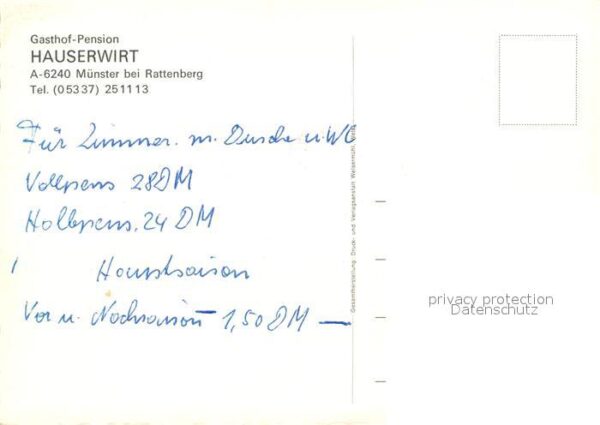 Gasthof-Pension
HAUSERWIRT
A-6240 Münster bei Rattenberg
Tel. (05337) 251113
Für Zimmer. m. Dusche u. WC
Vollpens 28 DM
Halbpens. 24 DM
Hauptsaison
Vor u. Nachsaison 1,50 DM —
Gesamtherstellung: Druck- und Verlagsanstalt Welsermühl, Wels
privacy protection
Datenschutz